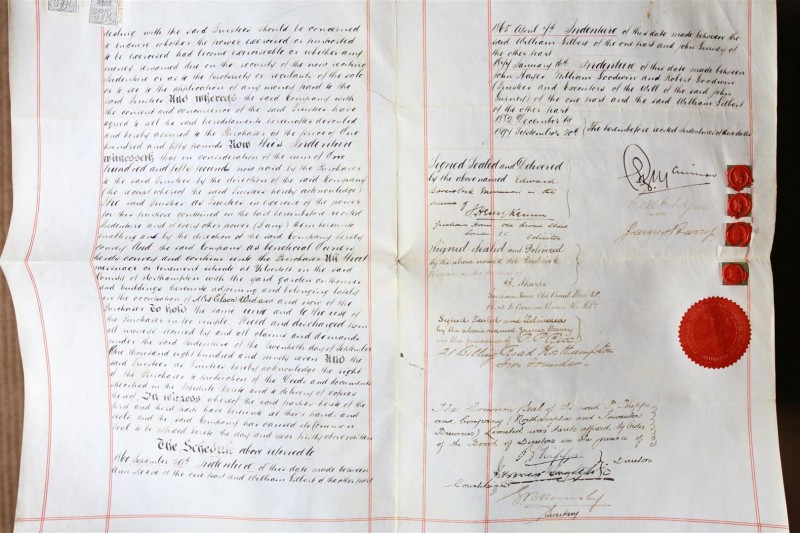 dealing with the said Trustees should be concerned
to enquire whether the power exercised or purported
to be exercised had become exercisable or whether any
money remained due on the security of the now reciting
Indenture or as to the propriety or regularity of the sale
or to see to the application of any money paid to the
said Trustees And whereas the said Company with
the consent and concurrence of the said Trustees have
agreed to sell the said hereditaments hereinafter described
and hereby assured to the Purchaser at the price of One
hundred and fifty pounds Now this Indenture
witnesseth that in consideration of the sum of One
hundred and fifty pounds now paid by the Purchaser
to the said Trustees by the direction of the said Company
(the receipt whereof the said Trustees hereby acknowledge)
the said Trustees as Trustees in exercise of the power
for this purpose contained in the last hereinbefore recited
Indenture and of every other power (if any) them hereunto
enabling and by the direction of the said Company hereby
convey And the said Company as beneficial Owners
hereby convey and confirm unto the Purchaser All that
messuage or tenement situate at Yelvertoft in the said
County of Northampton with the yard garden outhouses
and buildings thereunto adjoining and belonging lately
in the occupation of Mrs Elson Widow and now of the
Purchaser To hold the same unto and to the use of
the Purchaser in fee simple Freed and discharged from
all moneys secured by and all claims and demands
under the said Indenture of the Twentieth day of September
One thousand eight hundred and ninety seven And the
said Trustees as Trustees hereby acknowledge the right
of the Purchaser to production of the Deeds and documents
specified in the Schedule hereto and to delivery of copies
thereof. In witness whereof the said parties hereto of the
third and first parts have hereunto set their hands and
seals and the said Company has caused its Common
Seal to be affixed hereto the day and year firstly above written
The Schedule above referred to
1860 September 29th Indenture of this date made between
Ann Reeve of the one part and William Gilbert of the other part
1865 April 7th Indenture of this date made between the
said William Gilbert of the one part and John Gurney of
the other part
1877 January 16th Indenture of this date made between
John Hafer William Goodwin and Robert Goodwin
(Trustees and Executors of the Will of the said John
Gurney) of the one part and the said William Gilbert
of the other part
December 14
1897 September 20th } The hereinbefore recited Indentures of these dates
Signed Sealed and Delivered
by the above named Edward
in the
presence of
J Henry
House Old Broad Street
Solicitor
Signed Sealed and Delivered
by the above named
G. Sharpe
House, Old Broad Street EC
Signed Sealed and Delivered
by the above named James Barry
in the presence of
21 Billing Road Northampton
Iron Founder
James Barry
The Common Seal of the said P. Phipps
and Company (Northampton and Towcester
Breweries) Limited was hereto affixed by order
of the Board of Directors in the presence of
Phipps
Directors
Secretary